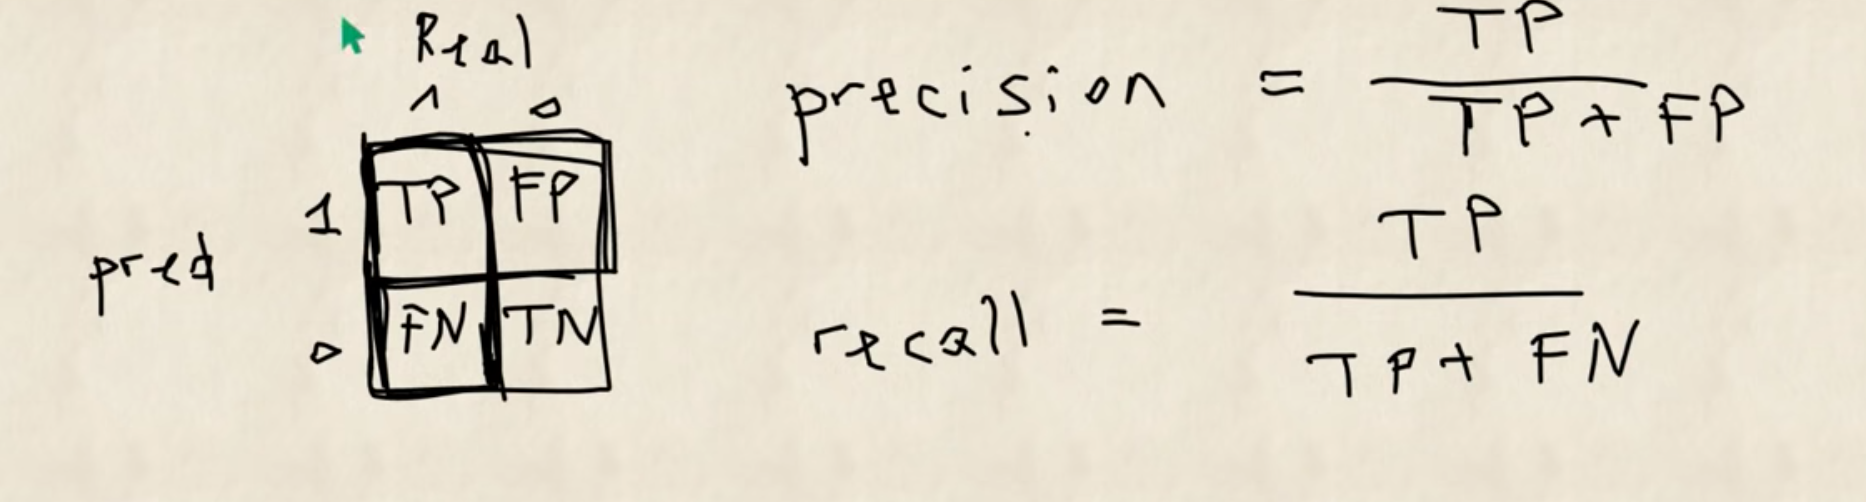 Real
1 0
pred
1 TP FP
0 FN TN
precision = TP
TP + FP
recall = TP
TP + FN